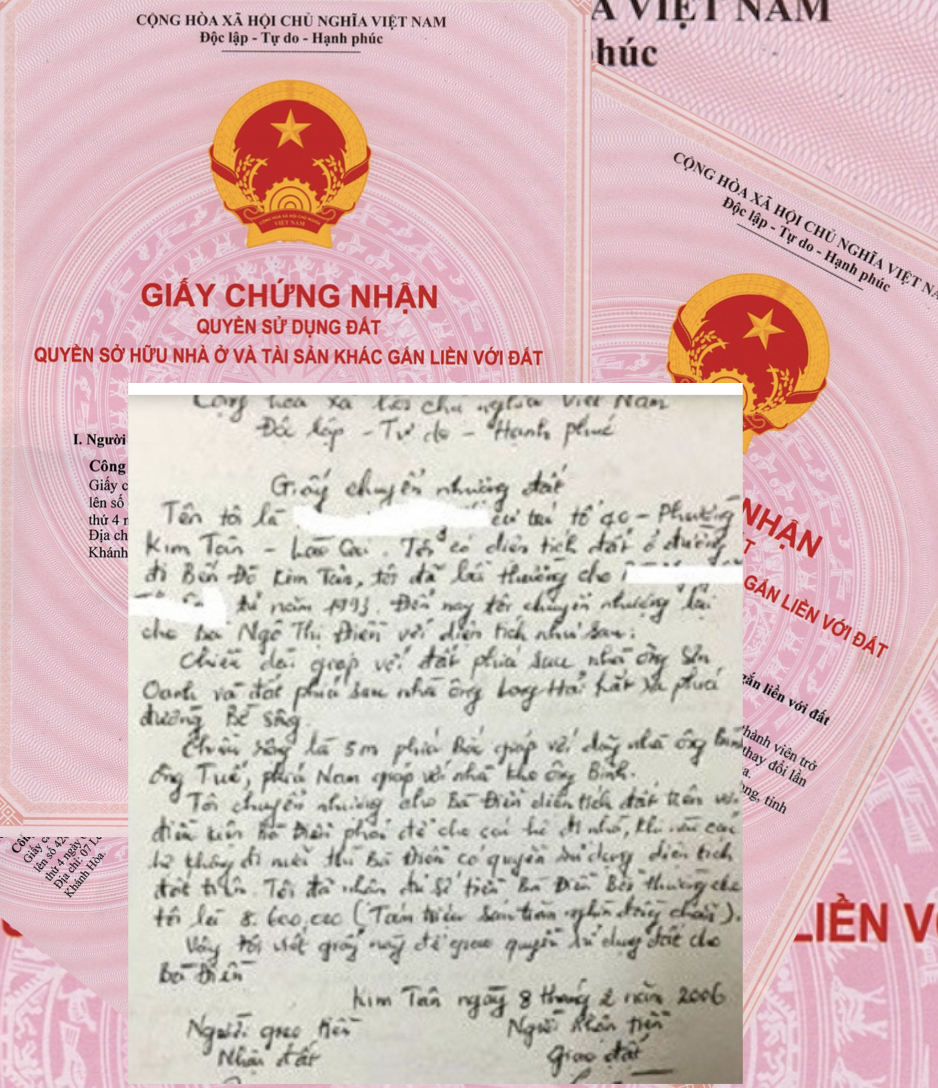 CỘNG HÒA XÃ HỘI CHỦ NGHĨA VIỆT NAM
Độc lập - Tự do - Hạnh phúc
CỘNG HÒA XÃ HỘI CHỦ NGHĨA
VIỆT NAM
GIẤY CHỨNG NHẬN
QUYỀN SỬ DỤNG ĐẤT
QUYỀN SỞ HỮU NHÀ Ở VÀ TÀI SẢN KHÁC GẮN LIỀN VỚI ĐẤT
I. Người
Công
Giấy c
lên số
thứ 4 n
Địa ch
Khánh
A VIỆT NAM
húc
CỘNG HÒA XÃ HỘI CHỦ NGHĨA VIỆT NA
Độc lập - Tự do - Hạnh phúc
NHẬN
T
GẮN LIỀN VỚI ĐẤT
gắn liền với đất
thành viên trở
thay đổi lần
a.
ng, tỉnh
Côn
Giấy c
lên số 42
thứ 4 ngày
Địa chỉ: 07 L
Khánh Hòa.
LIỀN V
Cộng hòa xã hội chủ nghĩa Việt Nam
Độc lập - Tự do - Hạnh phúc
Giấy chuyển nhường đất
Tên tôi là cư trú tổ 40 - Phường
Kim Tân - Lào Cai. Tôi có diện tích đất ở đường
đi Bến Đò Kim Tân, tôi đã bồi thường cho
từ năm 1993. Đến nay tôi chuyển nhượng lại
cho bà Ngô Thị Điền với diện tích như sau:
Chiều dài giáp với đất phía sau nhà ông Sơn
Oanh và đất phía sau nhà ông Long Hải phía
đường Bờ sông.
Chiều rộng là 5m phía Bắc giáp với nhà ông Bình
ông Tuế, phía Nam giáp với nhà kho ông Bình.
Tôi chuyển nhượng cho Bà Điền diện tích đất trên với
điều kiện Bà Điền phải để cho cái hè đi nhờ, khi nào cái
hè không đi nữa thì Bà Điền có quyền sử dụng diện tích
đất trên. Tôi đã nhận đủ số tiền Bà Điền Bồi thường cho
tôi là 8.600,000 (Tám triệu sáu trăm nghìn đồng chẵn).
Vậy tôi viết giấy này để giao quyền sử dụng đất cho
bà Điền
Kim Tân ngày 8 tháng 2 năm 2006
Người giao tiền
Nhận đất
Người nhận tiền
Giao đất